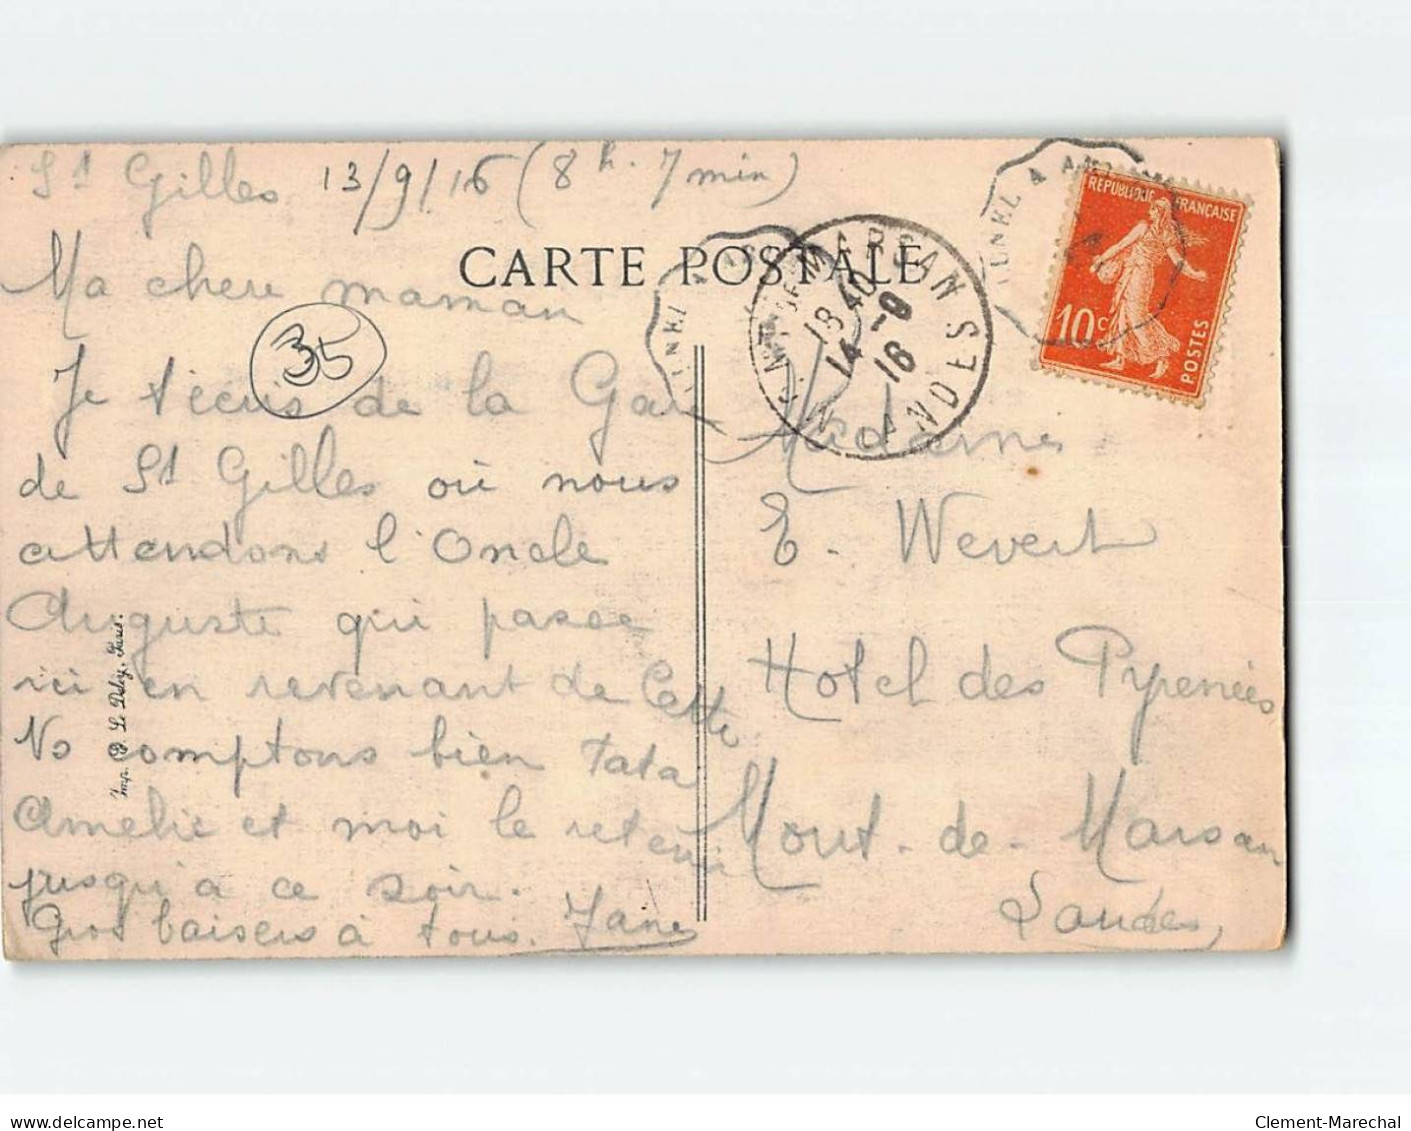 St Gilles 13/9/16 (8 h. 7 min)
CARTE POSTALE
Ma chere maman
35
Je t'écris de la Gare
de St Gilles où nous
attendons l'Oncle
Auguste qui passe
ici en revenant de Cette
Ns comptons bien Tata
Amelie et moi le retenir
jusqu'à ce soir.
Gros baisers à tous. Jane
Imp. B. Le Deley, Paris.
MONT-DE-MARSAN LANDES
18 40
14 -9
16
REPUBLIQUE FRANÇAISE
10c
POSTES
Madame
E. Wevert
Hotel des Pyrenées
Mont-de-Marsan
Landes
Clement-Marechal